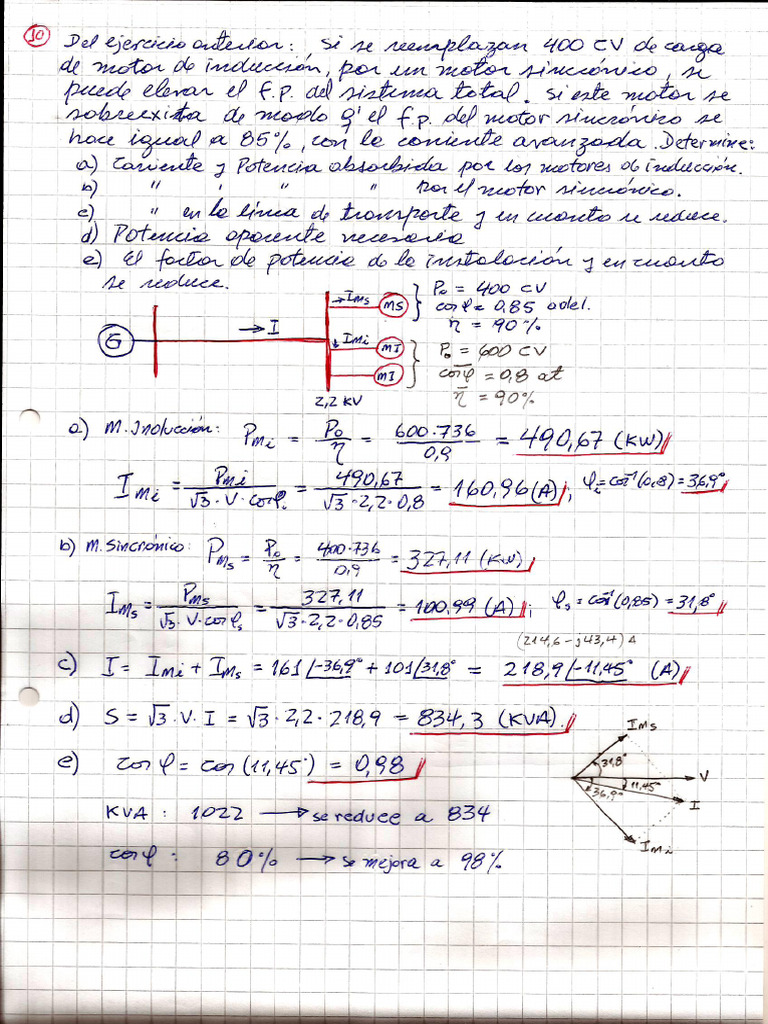 10 Del ejercicio anterior: , si se reemplazan 400 CV de carga
de motor de inducción, por un motor sincrónico, se
puede elevar el f.p. del sistema total. si este motor se
sobreexita de modo q' el f.p. del motor sincrónico se
hace igual a 85%, con la corriente avanzada. Determine:
a) Corriente y Potencia absorbida por los motores de inducción.
b) " " " " por el motor sincrónico.
c) " en la línea de transporte y en cuanto se reduce.
d) Potencia aparente necesaria
e) El factor de potencia de la instalación y en cuanto
se reduce.
G → I
→ IMs MS
IMi MI
MI
2,2 KV
Po = 400 CV
cosφ = 0,85 adel.
η = 90%
Po = 600 CV
cosφ = 0,8 at
η = 90%
a) M. Inducción: PMi = Po/η = 600·736/0,9 = 490,67 (KW)
IMi = PMi/√3·V·cosφi = 490,67/√3·2,2·0,8 = 160,96 (A); φi = cos⁻¹(0,8) = 36,9°
b) M. Sincrónico: PMs = Po/η = 400·736/0,9 = 327,11 (KW)
IMs = PMs/√3·V·cosφs = 327,11/√3·2,2·0,85 = 100,99 (A); φs = cos⁻¹(0,85) = 31,8°
(214,6 - j43,4) A
c) I = IMi + IMs = 161/-36,9° + 101/31,8° = 218,9/-11,45° (A)
d) S = √3·V·I = √3·2,2·218,9 = 834,3 (KVA)
e) cosφ = cos(11,45°) = 0,98
KVA : 1022 → se reduce a 834
cosφ : 80% → se mejora a 98%
IMs
31,8°
V
11,45°
36,9°
I
IMi